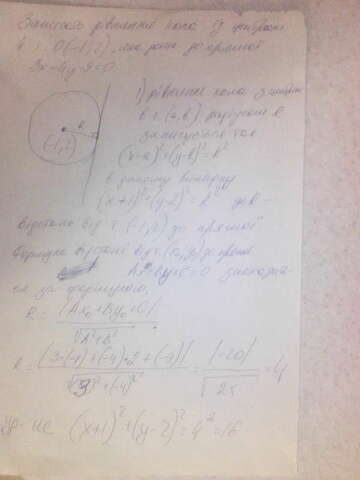 рівняння кола із центром
в т. О(-1; 2), до прямої
3x-4y-9=0
1) рівняння кола з центром
в т. (a, b), радіусом R
записується так
(x-a)²+(y-b)²=R²
в даному випадку
(x+1)²+(y-2)²=R² де R -
R
(-1, 2)
відстань від т (-1, 2) до прямої
Формула відстані від т. до прямої
Ax+By+C=0
за формулою.
R = |Ax₀+By₀+C| / √A²+B²
R = |3·(-1)+(-4)·2+(-9)| / √(3)²+(-4)² = |-20| / √25 = 4
(x+1)²+(y-2)²=4²=16